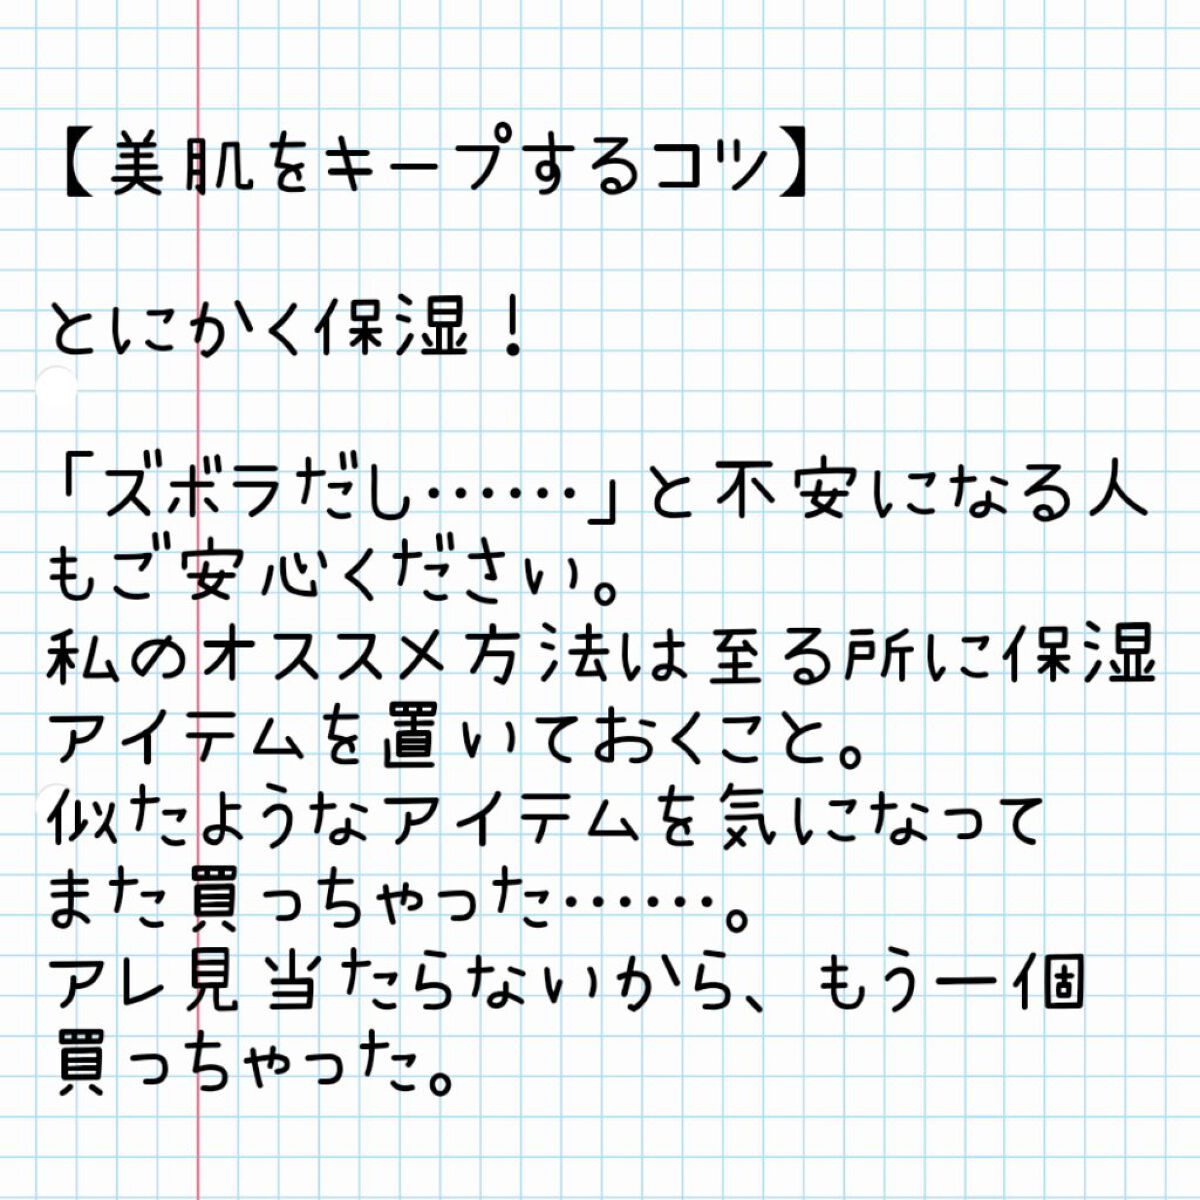 【美肌をキープするコツ】
とにかく保湿！
「ズボラだし……」と不安になる人
もご安心ください。
私のオススメ方法は至る所に保湿
アイテムを置いておくこと。
似たようなアイテムを気になって
また買っちゃった……。
アレ見当たらないから、もう一個
買っちゃった。